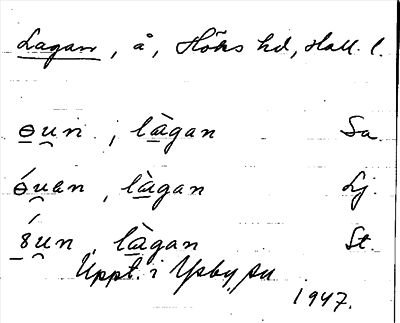 Lagan, å, Höks hd, Hall. l.
ɵ̲u̯n ; là̲gan Sa.
ɵ̲́u̯an , là̲gan Lj.
8̲́u̯n , là̲gan St.
Uppt. i Ysby sn
1947.